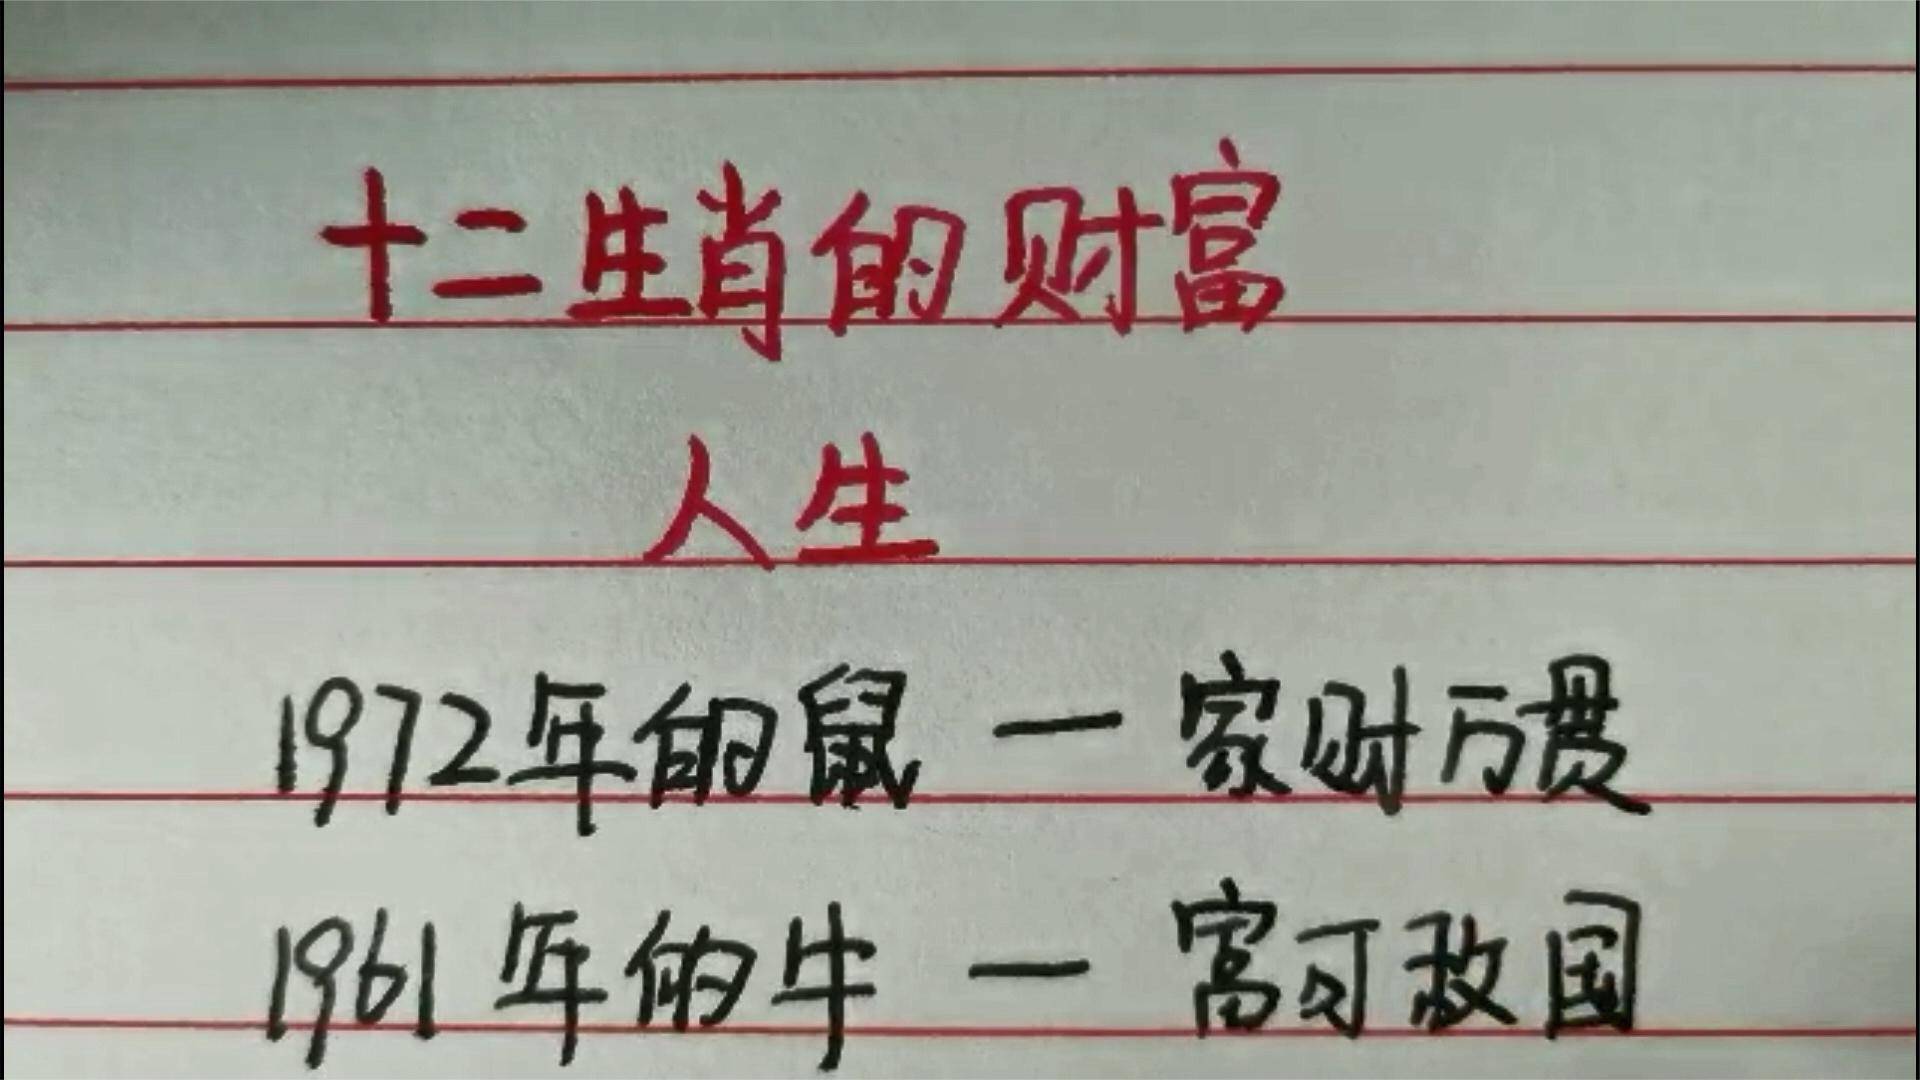 十二生肖的财富
人生
1972年的鼠一家财万贯
1961年的牛一富可敌国